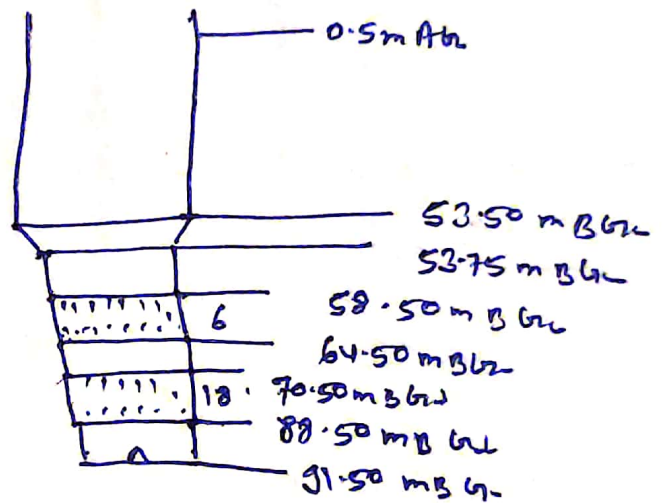 0.5m AGL
53.50 m BGL
53.75 m BGL
6 58.50 m BGL
64.50 m BGL
18. 70.50 m BGL
88.50 m BGL
91.50 m BGL